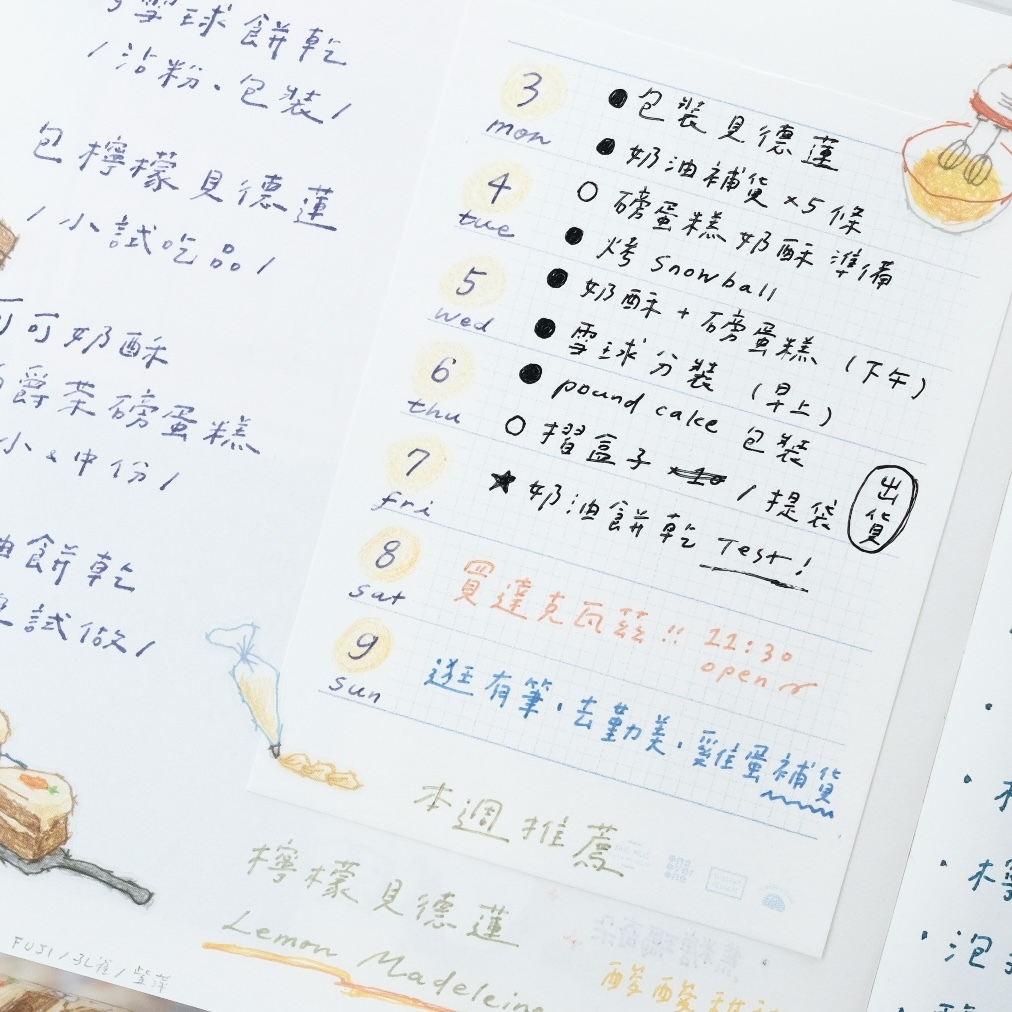 雪球餅乾
/沾粉、包裝/
包檸檬貝德蓮
/小試吃品/
可可奶酥
爵茶磅蛋糕
小、中份/
餅乾
試做/
3
mon
4
tue
5
wed
6
thu
7
fri
8
sat
9
sun
●包裝貝德蓮
●奶油補貨×5條
○磅蛋糕奶酥準備
●烤snowball
●奶酥+磅蛋糕(下午)
●雪球分裝(早上)
●pound cake包裝
○摺盒子×10/提袋
出貨
★奶油餅乾Test!
買達克瓦茲!! 11:30
open
逛有筆、去勤美、雞蛋補貨
本週推薦
檸檬貝德蓮
Lemon Madeleine
FUJI/
泡